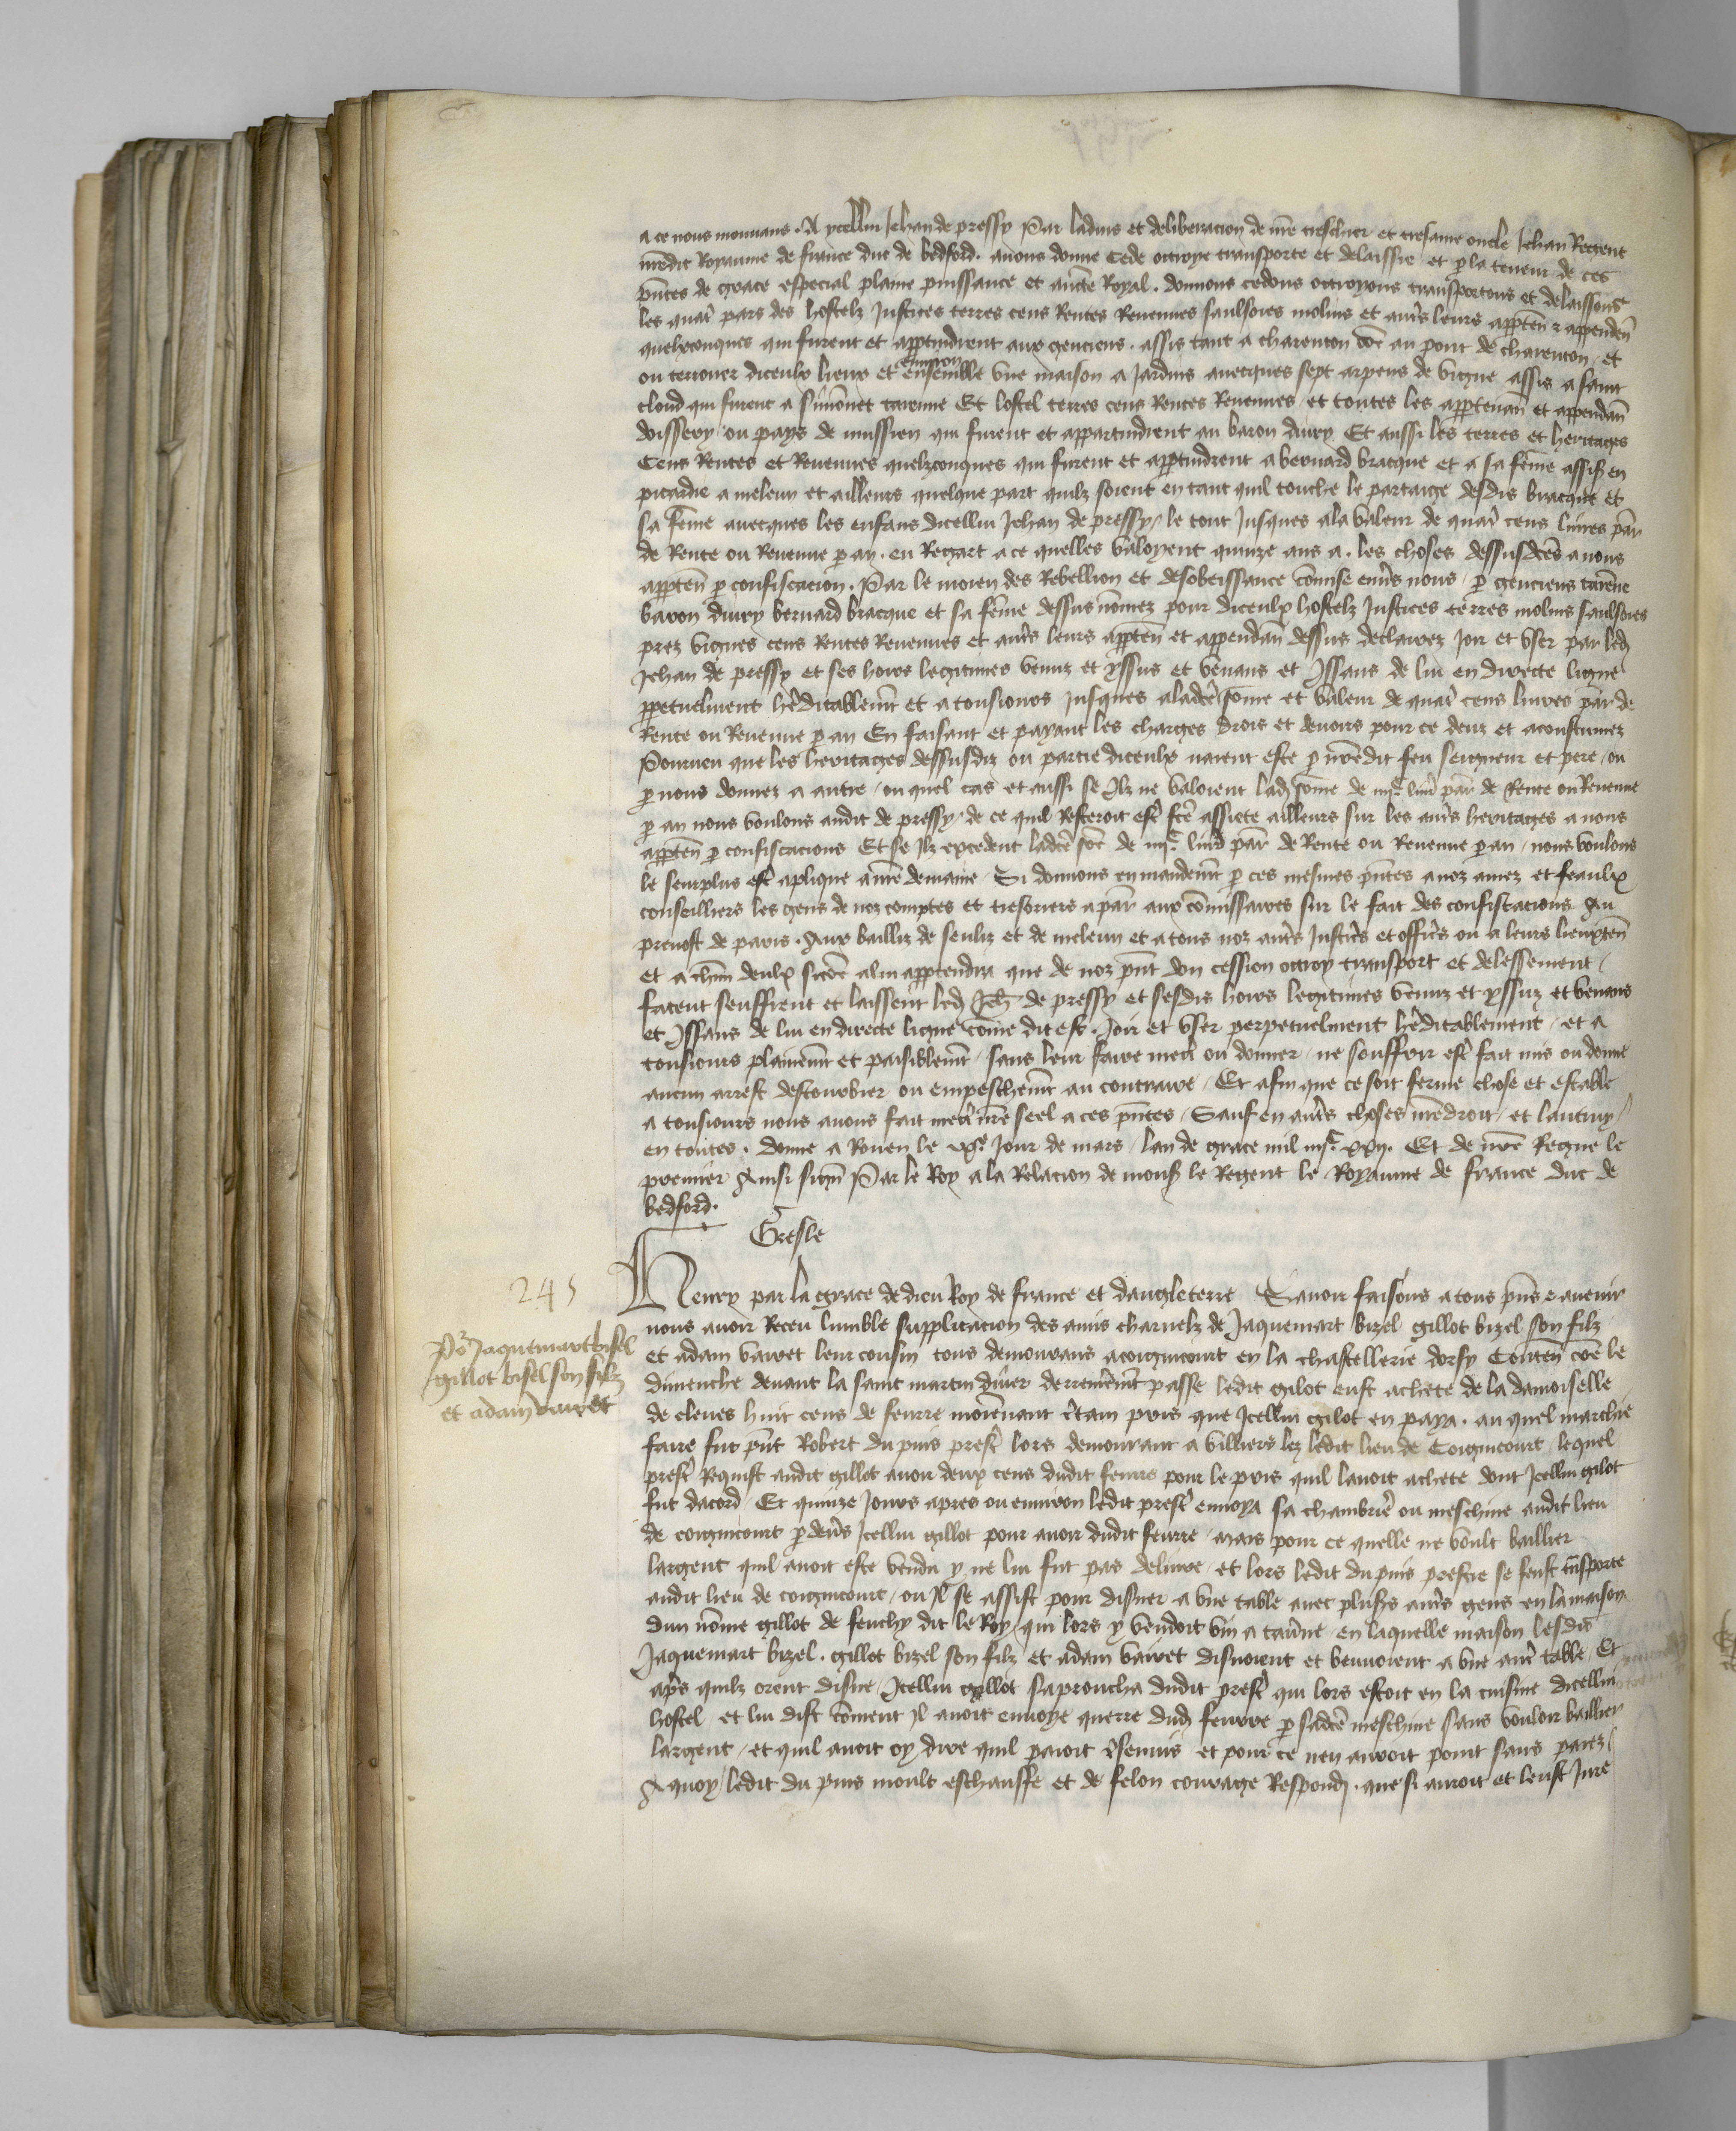 a ce nous mouvans. A ycellui Jehan de pressy Par ladvis et deliberacion de nre treschier et tresame oncle Jehan Regent
nredit Royaume de france duc de bedford. avons donne cede ottroye transporte et delaissie et p la teneur de ces
pntes de grace especial plaine puissance et aucte Royal. donnons cedons ottroyons transportons et delaissons
les quatr pars des hostelz Justices terres cens Rentes Revenues saulsoies molins et autrs leurs apptен et appenden
quelxconques qui furent et apptindrent aux genciens. assis tant a charenton coe au pont de charenton et
ou terrouer diceulx lieux et environ ensemble une maison a Jardins avecques sept arpens de vigne assis a saint
cloud qui furent a simonnet tarenne Et lostel terres cens Rentes Revenues et toutes les apptenan et appendan
doissery ou pays de mussien qui furent et appartindrent au baron divry Et aussi les terres et heritages
Cens Rentes et Revenues quelzconques qui furent et apptindrent a bernard bracque et a sa feme assis en
picardie a meleun et ailleurs quelque part quilz soient en tant quil touche le partaige desdis bracque et
sa feme avecques les enfans dicellui Jehan de pressy / le tout Jusques ala valeur de quatr cens livres par
de Rente ou Revenue p an. en Regart a ce quelles valoyent quinze ans a. les choses dessusdctes a nous
appten p confiscacion. Par le moien des Rebellion et desobeissance comise envrs nous p genciens tarene
baron divry bernard bracque et sa feme dessus nomez pour diceulx hostelz Justices terres molins saulsoies
prez vignes cens Rentes Revenues et autrs leurs appten et appendan dessus declairez Joir et user par led
Jehan de pressy et ses hoirs legitimes venuz et yssus et venans et Issans de lui en directe ligne
ppetuelment heditablemt et a tousiours Jusques aladcte some et valeur de quatr cens livres par de
Rente ou Revenue p an En faisant et payant les charges drois et devoirs pour ce deuz et acoustumez
Pourveu que les heritages dessusdiz ou partie diceulx naient este p nredit feu seigneur et pere / ou
p nous donnez a autre / ou quel cas et aussi se Ilz ne valoient lad some de iiijc livr par de Rente ou Revenue
p an nous voulons audit de pressy / de ce quil Resteroit estr fcte assiete ailleurs sur les autrs heritages a nous
appten p confiscacions Et se Ilz excedent ladcte soe de iiijc livrs par de Rente ou Revenue p an / nous voulons
le seurplus estr aplique a nre demaine / Si donnons en mandemt p ces mesmes pntes a noz amez et feaulx
conseilliers les gens de noz comptes et tresoriers a par aux comissaires sur le fait des confiscacions Au
prevost de paris. Aux bailliz de senliz et de meleun et a tous noz autrs Justicrs et officrs ou a leurs lieuxten
et a chun deulx sicoe alui apptendra que de noz pnt don cession ottroy transport et delessement /
facent seuffrent et laissent led Jeh de pressy et sesdis hoirs legitimes venuz et yssuz et venans
et Issans de lui en directe ligne come dit est. Joir et user perpetuelment heditablement / et a
tousiours plainemt et paisiblemt / sans leur faire mectr ou donner / ne souffrir estr fait mis ou donne
aucun arrest destourbier ou empeschemt au contraire / Et afin que ce soit ferme chose et estable
a tousiours nous avons fait mectr nre seel a ces pntes / Sauf en autrs choses nredroit / et lautruy /
en toutes. donne a Rouen le Jour de mars / lan de grace mil iiijc xxij. Et de nre Regne le
premier Ainsi sign Par le Roy a la Relacion de mons le Regent le Royaume de france duc de
bedford.
Gresle
245
Henry par la grace de dieu Roy de france et dangleterre Savoir faisons a tous pns et avenir
nous avoir Receu lumble supplicacion des amis charnelz de Jaquemart bizel gillot bizel son filz
Po Jaquemart bisel
gillot bisel son filz
et adam vairet
et adam vairet leur cousin tous demourans acoigncourt en la chastellerie dorsy Conten coe le
dimenche devant la saint martin diver derremeint passe ledit gilot eust achete de la damoiselle
de cleves huit cens de feurre moiennant ctain pris que Icellui gilot en paya. au quel marchie
faire fut pnt Robert du puis prestr lors demourant a villiers lez ledit lieu de Coigncourt / lequel
prestr Requist audit gillot avoir deux cens dudit feurre pour le pris quil lavoit achete dont Icellui gilot
fut dacord / Et quinze Jours apres ou environ ledit prestr envoya sa chambrie ou meschine audit lieu
de coigncourt p devrs Icellui gillot pour avoir dudit feurre / mais pour ce quelle ne voult baillier
largent quil avoit este vendu y ne lui fut pas delivre / et lors ledit du puis prestre se feust tnsporte
audit lieu de coigncourt / ou Il se assist pour disner a une table avec plusrs autrs gens en la maison
dun nome gillot de feuchy dit le Roy / qui lors y vendoit vin a tavrne / en laquelle maison lesdit
Jaquemart bizel. gillot bizel son filz et adam vairet disnoient et bevvoient a une autr table / Et
aprs quilz orent disne / Icellui gillot saproucha dudit prestr qui lors estoit en la cuisine dicellui
hostel / et lui dist coment Il avoit envoye querre dud feurre p sadcte meschine sans vouloir baillier
largent / et quil avoit oy dire quil paioit et pour ce nen auroit point sans paier /
A quoy / ledit du puis moult eschauffe et de felon courage Respond. que si auroit et leust Jure